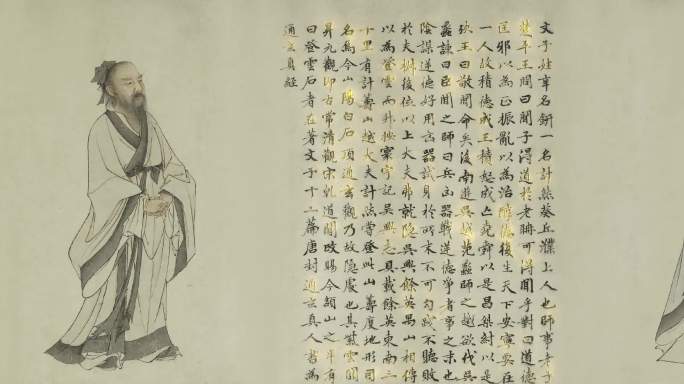 文子姓辛名鈃一名計然葵丘濮上人也師事老子
楚平王問曰聞子得道於老聃可得聞乎對曰道德
匡邪以為正振亂以為治醇德復生天下安寧要在
一人故積德成王積怨成亡堯舜以是昌桀紂以是
王曰敬聞命矣後南遊吳越范蠡師之越欲伐吳
蠡諫曰臣聞之師曰兵凶器戰逆德爭者事之末也
陰謀逆德好用凶器試身於所末不可勾踐不聽敗
於夫椒後位以上大夫弗就隱吳興餘英禺山相傳
以為登雲而升按寰宇記吳興志具載餘英東南三
十里有計籌山越大夫計然嘗登此山籌度地形
名焉今山陽白石頂通玄觀乃故隱處也其載雲關
昇元觀即古常清觀宋乾道間改賜今額山之半有
曰登雲石者在著文子十二篇唐封通玄真人書為
通玄真經